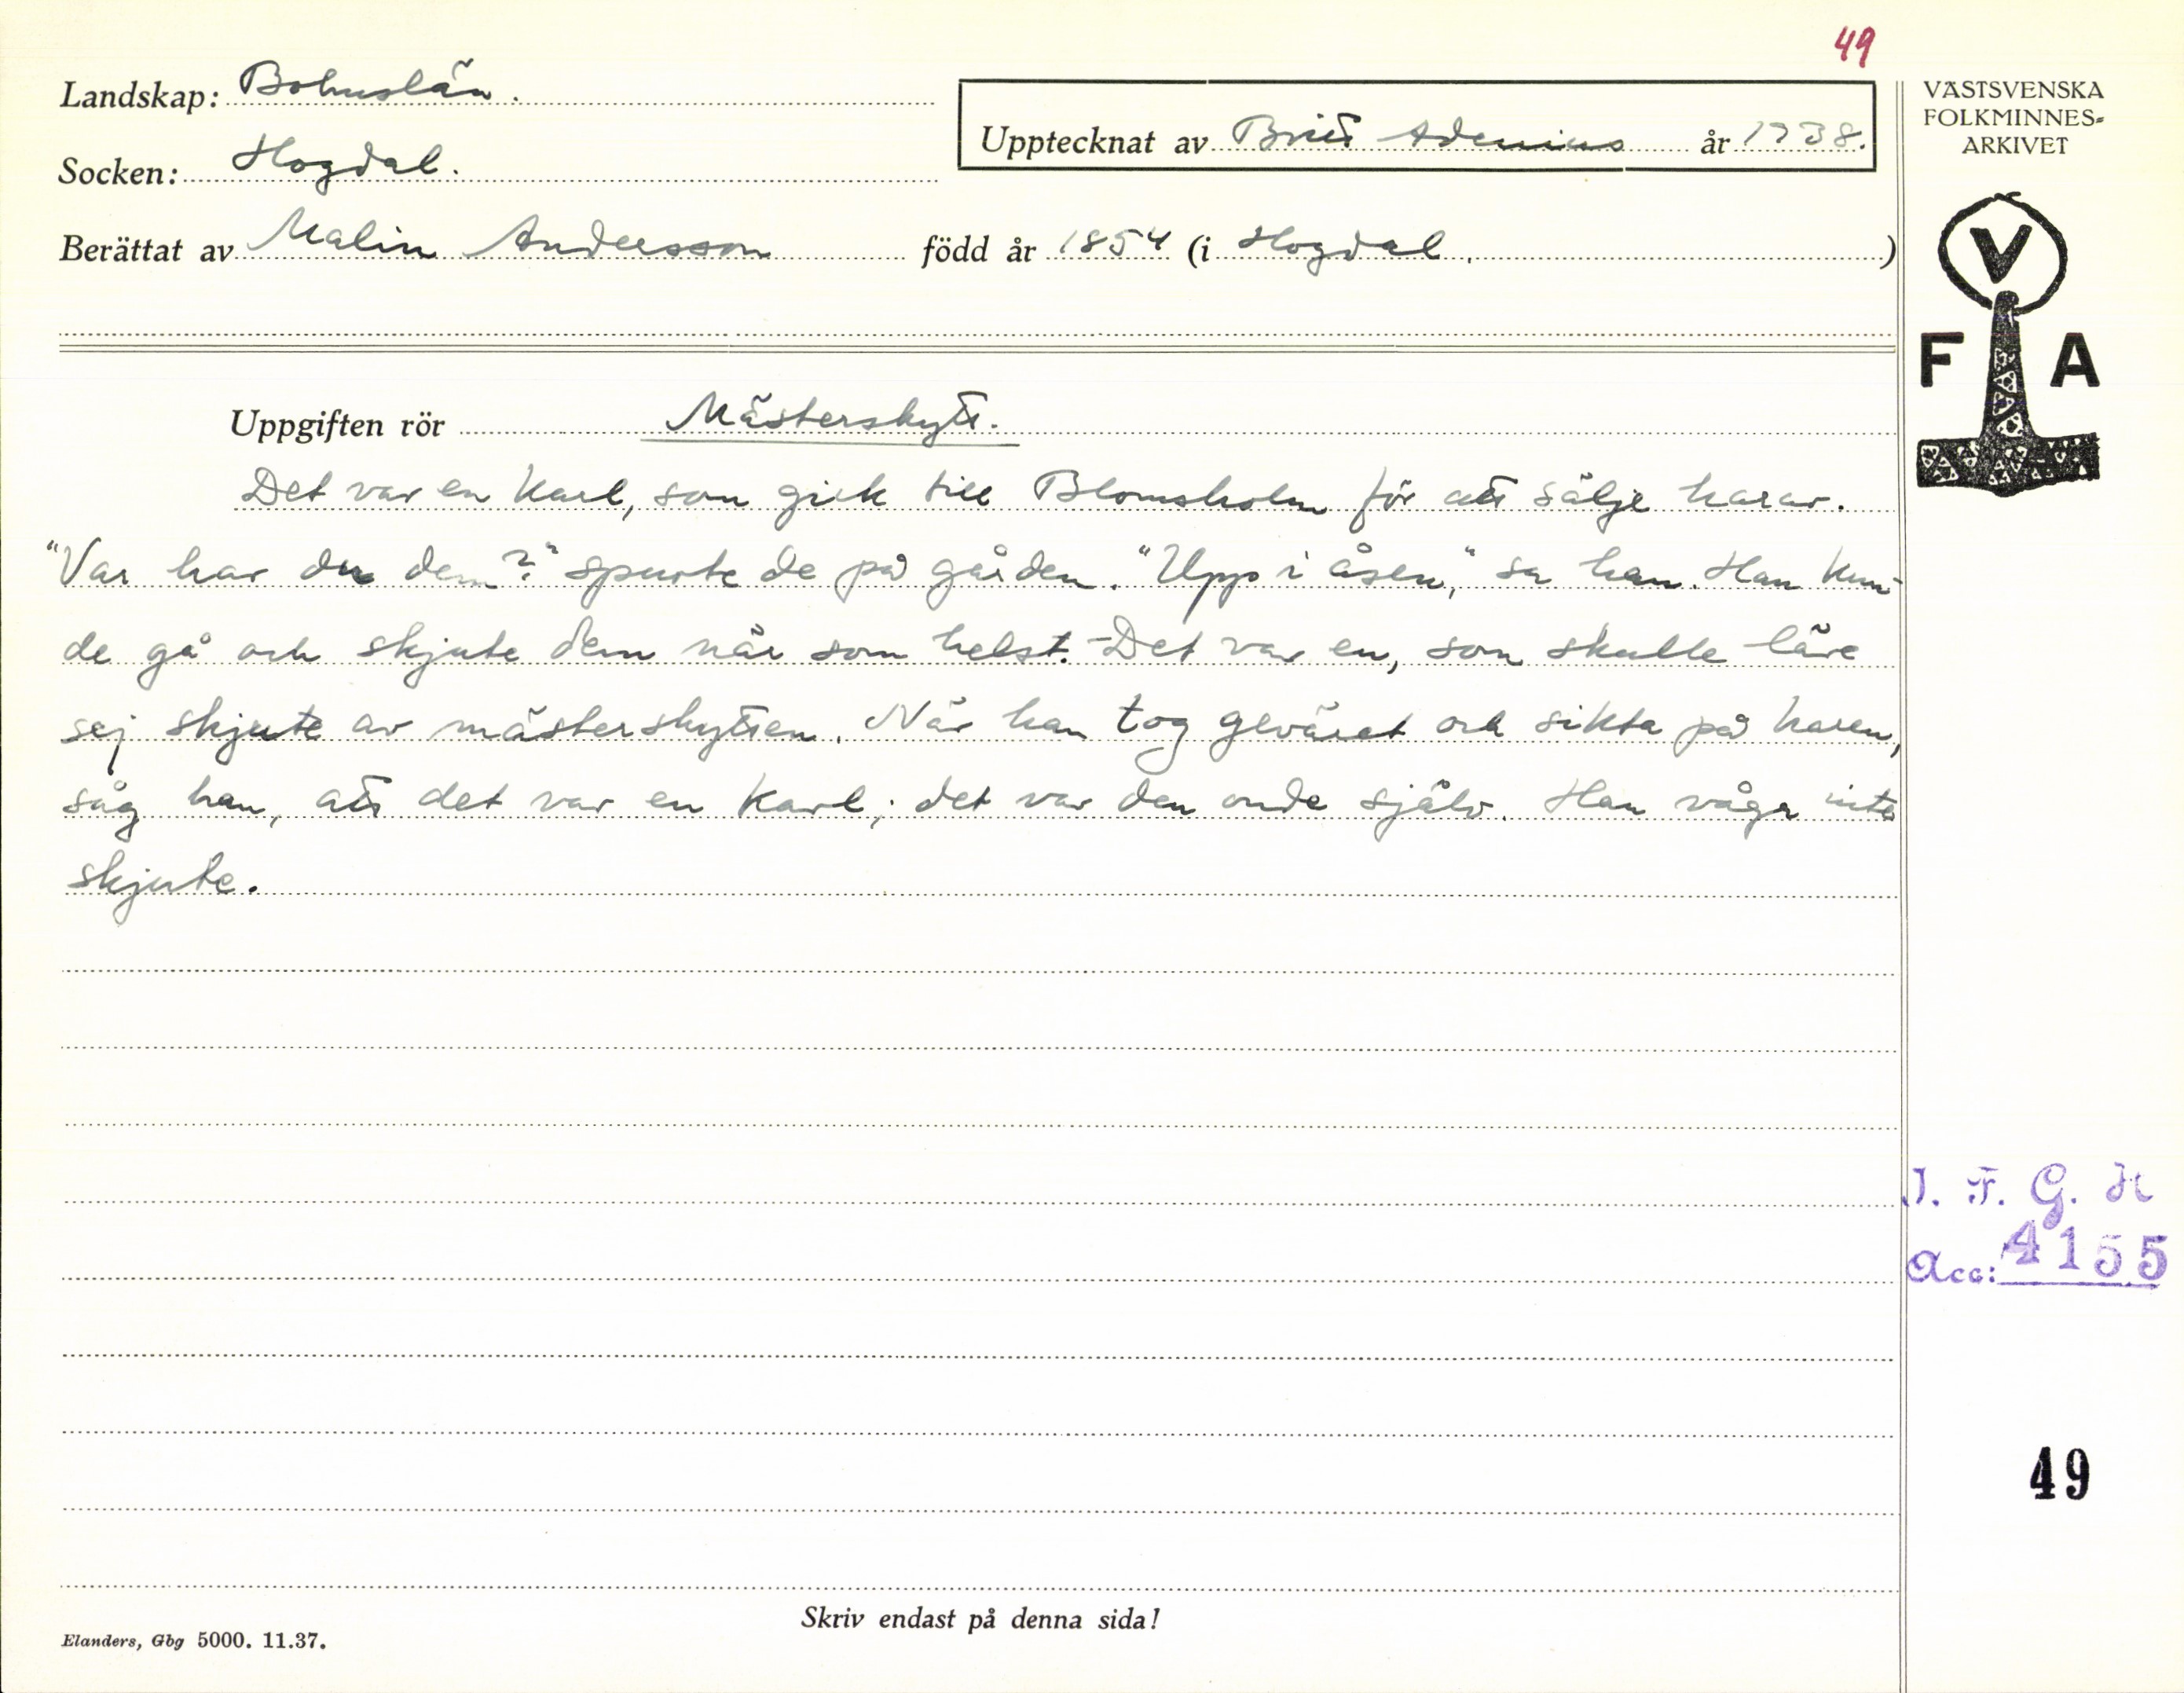 49
Landskap: Bohuslän.
Socken: Hogdal.
Upptecknat av Britt Adenius år 1938.
Berättat av Malin Andersson född år 1854 (i Hogdal.)
VÄSTSVENSKA
FOLKMINNES-
ARKIVET
V
F A
Uppgiften rör Mästerskytt.
Det var en karl, som gick till Blomsholm för att sälje harar.
"Var har du dem?" spurte de på gården. "Upp i åsen," sa han. Han kun-
de gå och skjute dem när som helst. - Det var en, som skulle läre
sej skjute av mästerskytten. När han tog geväret och sikta på haren,
såg han, att det var en karl; det var den onde själv. Han våga inte
skjute.
I. F. G. H
Acc: 4155
49
Skriv endast på denna sida!
Elanders, Gbg 5000. 11.37.